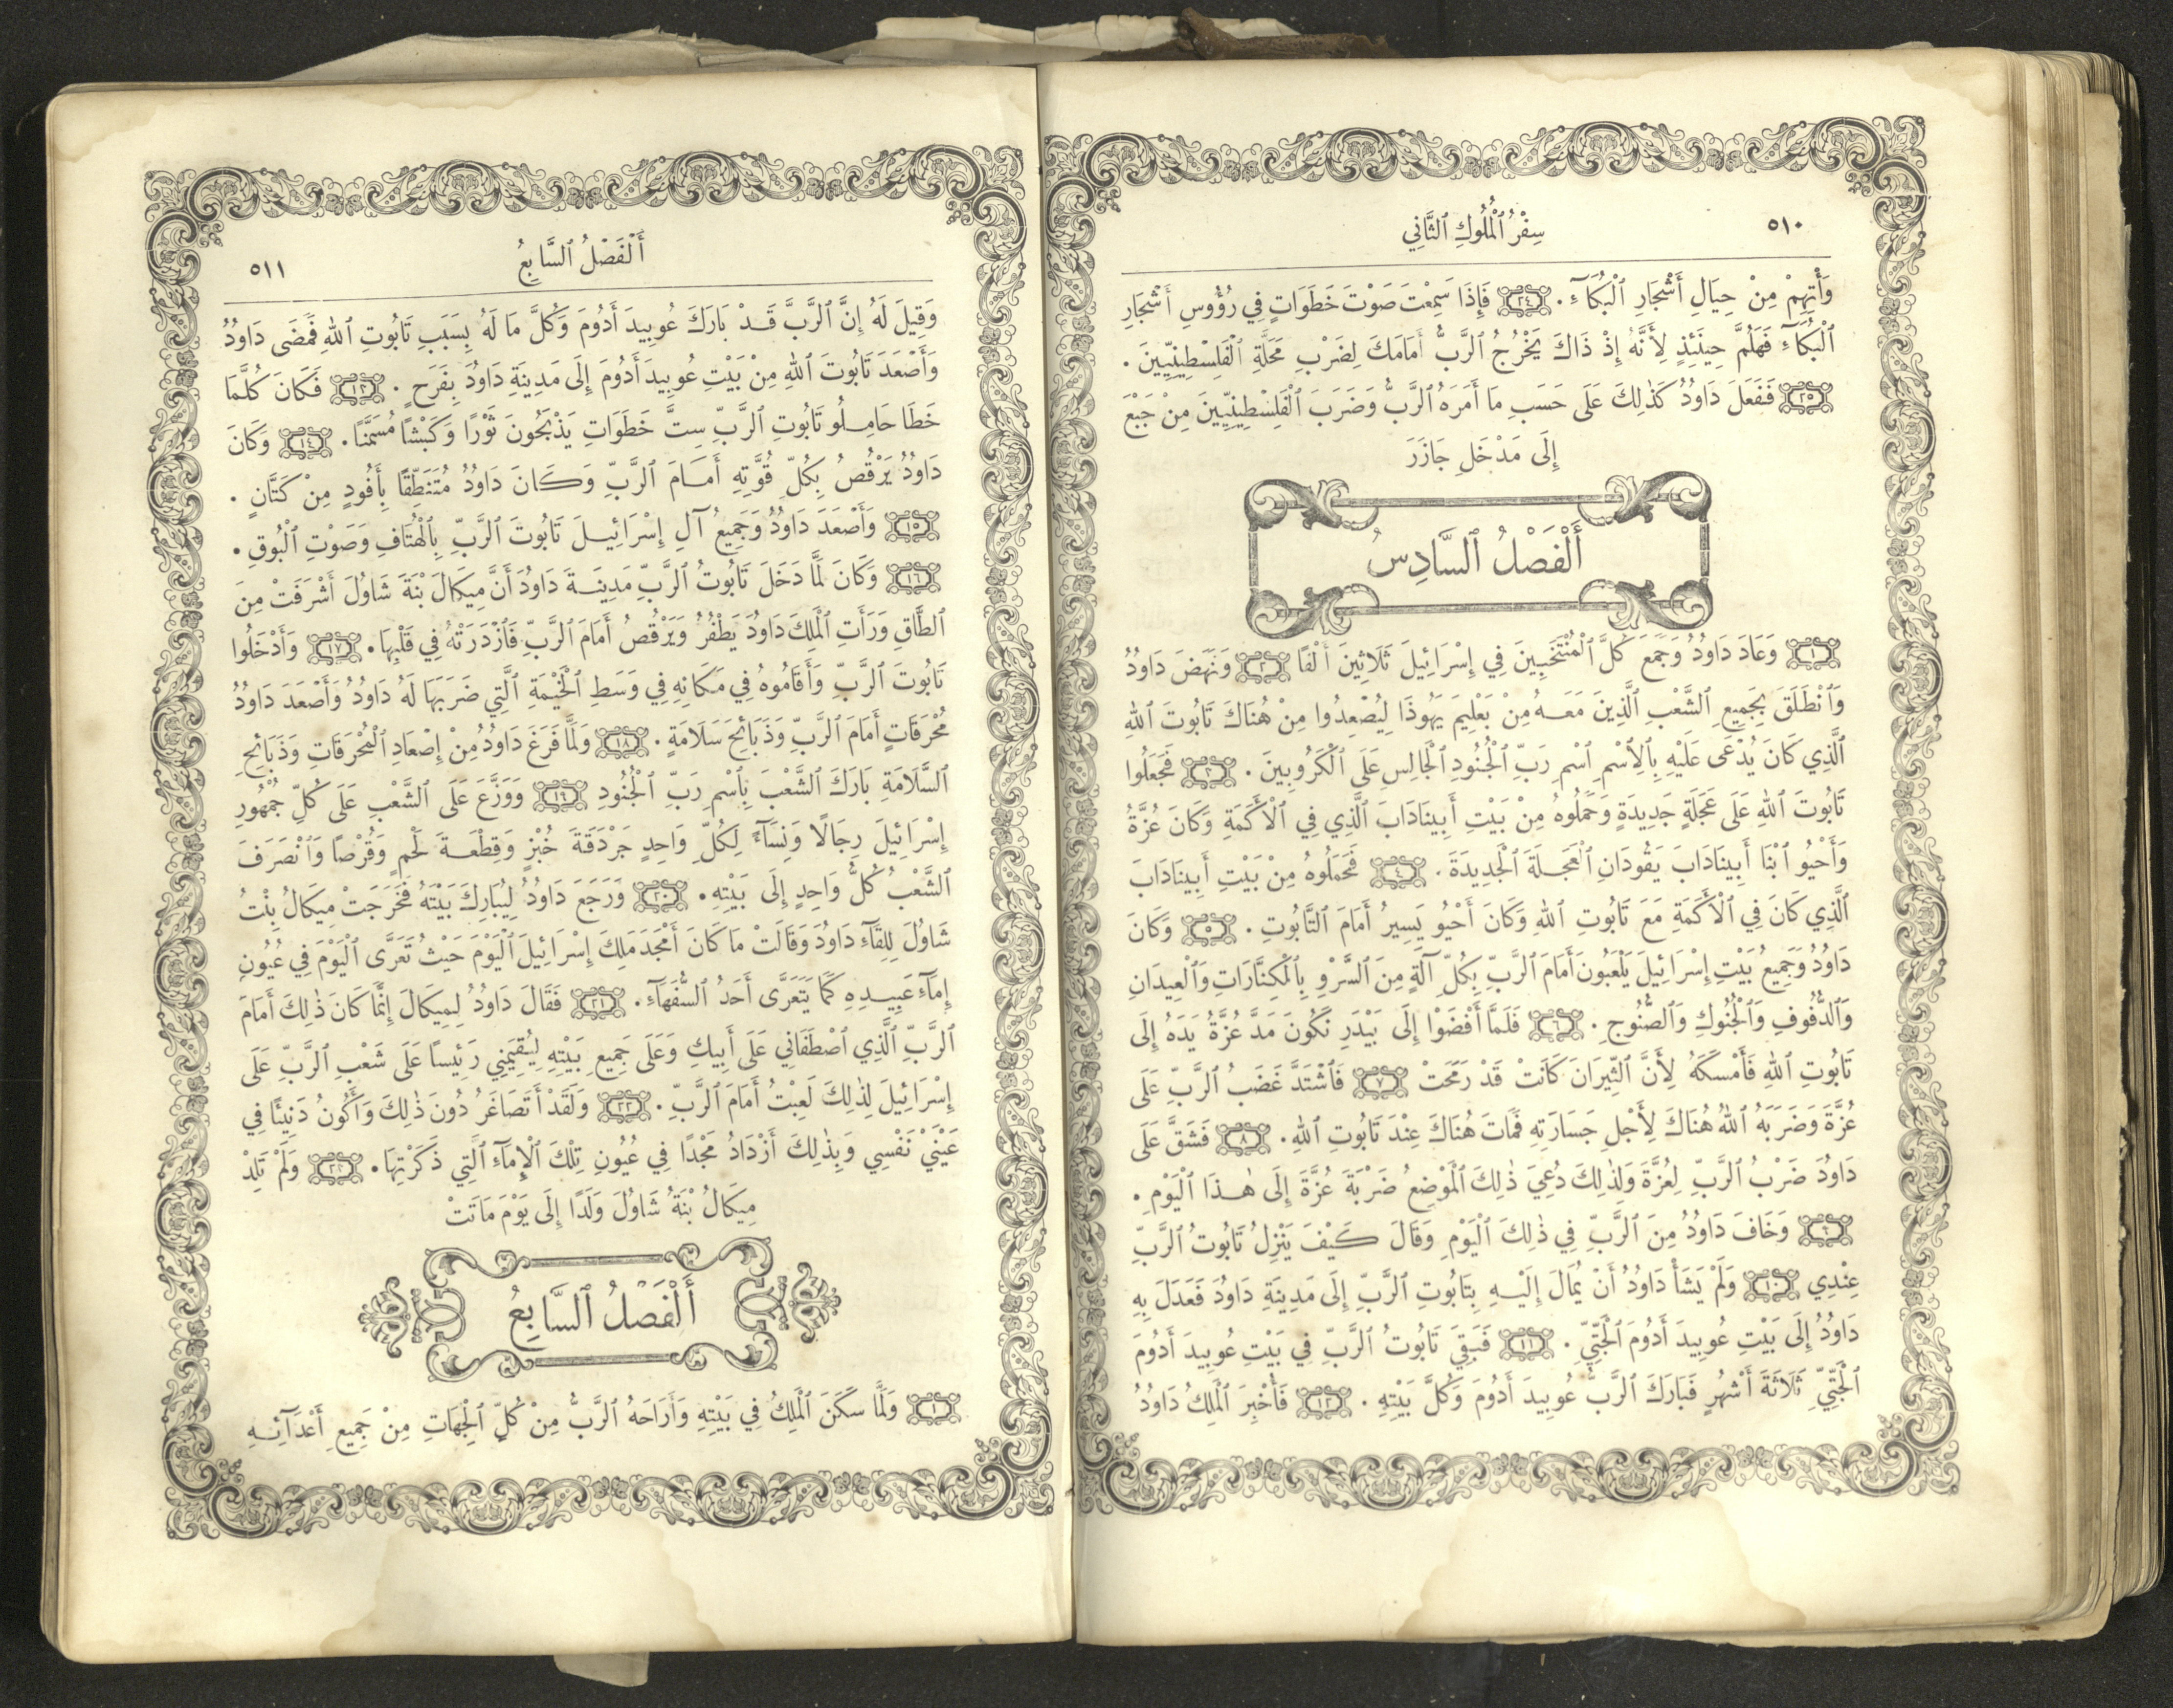 ٥١٠
سِفْرُ ٱلْمُلُوكِ ٱلثَّانِي
وَأْتِهِمْ مِنْ حِيَالِ أَشْجَارِ ٱلْبُكَآءِ. ٢٤ فَإِذَا سَمِعْتَ صَوْتَ خَطَوَاتٍ فِي رُؤُوسِ أَشْجَارِ
ٱلْبُكَآءِ فَهَلُمَّ حِينَئِذٍ لِأَنَّهُ إِذْ ذَاكَ يَخْرُجُ ٱلرَّبُّ أَمَامَكَ لِضَرْبِ مَحَلَّةِ ٱلْفَلِسْطِينِيِّينَ.
٢٥ فَفَعَلَ دَاوُدُ كَذٰلِكَ عَلَى حَسَبِ مَا أَمَرَهُ ٱلرَّبُّ وَضَرَبَ ٱلْفَلِسْطِينِيِّينَ مِنْ جَبْعَ
إِلَى مَدْخَلِ جَازَرَ
أَلْفَصْلُ ٱلسَّادِسُ
١ وَعَادَ دَاوُدُ وَجَمَعَ كُلَّ ٱلْمُنْتَخَبِينَ فِي إِسْرَائِيلَ ثَلَاثِينَ أَلْفًا ٢ وَنَهَضَ دَاوُدُ
وَٱنْطَلَقَ بِجَمِيعِ ٱلشَّعْبِ ٱلَّذِينَ مَعَهُ مِنْ بَعْلِيمَ يَهُوذَا لِيُصْعِدُوا مِنْ هُنَاكَ تَابُوتَ ٱللهِ
ٱلَّذِي كَانَ يُدْعَى عَلَيْهِ بِٱلِٱسْمِ ٱسْمِ رَبِّ ٱلْجُنُودِ ٱلْجَالِسِ عَلَى ٱلْكَرُوبِينَ. ٣ فَجَعَلُوا
تَابُوتَ ٱللهِ عَلَى عَجَلَةٍ جَدِيدَةٍ وَحَمَلُوهُ مِنْ بَيْتِ أَبِينَادَابَ ٱلَّذِي فِي ٱلْأَكَمَةِ وَكَانَ عُزَّةُ
وَأَحْيُو ٱبْنَا أَبِينَادَابَ يَقُودَانِ ٱلْعَجَلَةَ ٱلْجَدِيدَةَ. ٤ فَحَمَلُوهُ مِنْ بَيْتِ أَبِينَادَابَ
ٱلَّذِي كَانَ فِي ٱلْأَكَمَةِ مَعَ تَابُوتِ ٱللهِ وَكَانَ أَحْيُو يَسِيرُ أَمَامَ ٱلتَّابُوتِ. ٥ وَكَانَ
دَاوُدُ وَجَمِيعُ بَيْتِ إِسْرَائِيلَ يَلْعَبُونَ أَمَامَ ٱلرَّبِّ بِكُلِّ آلَةٍ مِنَ ٱلسَّرْوِ بِٱلْكِنَّارَاتِ وَٱلْعِيدَانِ
وَٱلدُّفُوفِ وَٱلْجُنُوكِ وَٱلصُّنُوجِ. ٦ فَلَمَّا أَفْضَوْا إِلَى بَيْدَرِ نَكُونَ مَدَّ عُزَّةُ يَدَهُ إِلَى
تَابُوتِ ٱللهِ فَأَمْسَكَهُ لِأَنَّ ٱلثِّيرَانَ كَانَتْ قَدْ رَمَحَتْ ٧ فَٱشْتَدَّ غَضَبُ ٱلرَّبِّ عَلَى
عُزَّةَ وَضَرَبَهُ ٱللهُ هُنَاكَ لِأَجْلِ جَسَارَتِهِ فَمَاتَ هُنَاكَ عِنْدَ تَابُوتِ ٱللهِ. ٨ فَشَقَّ عَلَى
دَاوُدَ ضَرْبُ ٱلرَّبِّ لِعُزَّةَ وَلِذٰلِكَ دُعِيَ ذٰلِكَ ٱلْمَوْضِعُ ضَرْبَةَ عُزَّةَ إِلَى هٰذَا ٱلْيَوْمِ.
٩ وَخَافَ دَاوُدُ مِنَ ٱلرَّبِّ فِي ذٰلِكَ ٱلْيَوْمِ وَقَالَ كَيْفَ يَنْزِلُ تَابُوتُ ٱلرَّبِّ
عِنْدِي ١٠ وَلَمْ يَشَأْ دَاوُدُ أَنْ يُمَالَ إِلَيْهِ بِتَابُوتِ ٱلرَّبِّ إِلَى مَدِينَةِ دَاوُدَ فَعَدَلَ بِهِ
دَاوُدُ إِلَى بَيْتِ عُوبِيدَ أَدُومَ ٱلْجَتِّيِّ. ١١ فَبَقِيَ تَابُوتُ ٱلرَّبِّ فِي بَيْتِ عُوبِيدَ أَدُومَ
ٱلْجَتِّيِّ ثَلَاثَةَ أَشْهُرٍ فَبَارَكَ ٱلرَّبُّ عُوبِيدَ أَدُومَ وَكُلَّ بَيْتِهِ. ١٢ فَأُخْبِرَ ٱلْمَلِكُ دَاوُدُ
أَلْفَصْلُ ٱلسَّابِعُ
٥١١
وَقِيلَ لَهُ إِنَّ ٱلرَّبَّ قَدْ بَارَكَ عُوبِيدَ أَدُومَ وَكُلَّ مَا لَهُ بِسَبَبِ تَابُوتِ ٱللهِ فَمَضَى دَاوُدُ
وَأَصْعَدَ تَابُوتَ ٱللهِ مِنْ بَيْتِ عُوبِيدَ أَدُومَ إِلَى مَدِينَةِ دَاوُدَ بِفَرَحٍ. ١٣ فَكَانَ كُلَّمَا
خَطَا حَامِلُو تَابُوتِ ٱلرَّبِّ سِتَّ خَطَوَاتٍ يَذْبَحُونَ ثَوْرًا وَكَبْشًا مُسَمَّنًا. ١٤ وَكَانَ
دَاوُدُ يَرْقُصُ بِكُلِّ قُوَّتِهِ أَمَامَ ٱلرَّبِّ وَكَانَ دَاوُدُ مُتَنَطِّقًا بِأَفُودٍ مِنْ كَتَّانٍ.
١٥ وَأَصْعَدَ دَاوُدُ وَجَمِيعُ آلِ إِسْرَائِيلَ تَابُوتَ ٱلرَّبِّ بِٱلْهُتَافِ وَصَوْتِ ٱلْبُوقِ.
١٦ وَكَانَ لَمَّا دَخَلَ تَابُوتُ ٱلرَّبِّ مَدِينَةَ دَاوُدَ أَنَّ مِيكَالَ بْنَةَ شَاوُلَ أَشْرَفَتْ مِنَ
ٱلطَّاقِ وَرَأَتِ ٱلْمَلِكَ دَاوُدَ يَطْفُرُ وَيَرْقُصُ أَمَامَ ٱلرَّبِّ فَٱزْدَرَتْهُ فِي قَلْبِهَا. ١٧ وَأَدْخَلُوا
تَابُوتَ ٱلرَّبِّ وَأَقَامُوهُ فِي مَكَانِهِ فِي وَسَطِ ٱلْخَيْمَةِ ٱلَّتِي ضَرَبَهَا لَهُ دَاوُدُ وَأَصْعَدَ دَاوُدُ
مُحْرَقَاتٍ أَمَامَ ٱلرَّبِّ وَذَبَائِحَ سَلَامَةٍ. ١٨ وَلَمَّا فَرَغَ دَاوُدُ مِنْ إِصْعَادِ ٱلْمُحْرَقَاتِ وَذَبَائِحِ
ٱلسَّلَامَةِ بَارَكَ ٱلشَّعْبَ بِٱسْمِ رَبِّ ٱلْجُنُودِ ١٩ وَوَزَّعَ عَلَى ٱلشَّعْبِ عَلَى كُلِّ جُمْهُورِ
إِسْرَائِيلَ رِجَالًا وَنِسَآءً لِكُلِّ وَاحِدٍ جَرْدَقَةَ خُبْزٍ وَقِطْعَةَ لَحْمٍ وَقُرْصًا وَٱنْصَرَفَ
ٱلشَّعْبُ كُلُّ وَاحِدٍ إِلَى بَيْتِهِ. ٢٠ وَرَجَعَ دَاوُدُ لِيُبَارِكَ بَيْتَهُ فَخَرَجَتْ مِيكَالُ بِنْتُ
شَاوُلَ لِلِقَآءِ دَاوُدَ وَقَالَتْ مَا كَانَ أَمْجَدَ مَلِكَ إِسْرَائِيلَ ٱلْيَوْمَ حَيْثُ تَعَرَّى ٱلْيَوْمَ فِي عُيُونِ
إِمَآءِ عَبِيدِهِ كَمَا يَتَعَرَّى أَحَدُ ٱلسُّفَهَآءِ. ٢١ فَقَالَ دَاوُدُ لِمِيكَالَ إِنَّمَا كَانَ ذٰلِكَ أَمَامَ
ٱلرَّبِّ ٱلَّذِي ٱصْطَفَانِي عَلَى أَبِيكِ وَعَلَى جَمِيعِ بَيْتِهِ لِيُقِيمَنِي رَئِيسًا عَلَى شَعْبِ ٱلرَّبِّ عَلَى
إِسْرَائِيلَ لِذٰلِكَ لَعِبْتُ أَمَامَ ٱلرَّبِّ. ٢٢ وَلَقَدْ أَتَصَاغَرُ دُونَ ذٰلِكَ وَأَكُونُ دَنِيئًا فِي
عَيْنَيْ نَفْسِي وَبِذٰلِكَ أَزْدَادُ مَجْدًا فِي عُيُونِ تِلْكَ ٱلْإِمَآءِ ٱلَّتِي ذَكَرْتِهَا. ٢٣ وَلَمْ تَلِدْ
مِيكَالُ بْنَةُ شَاوُلَ وَلَدًا إِلَى يَوْمَ مَاتَتْ
أَلْفَصْلُ ٱلسَّابِعُ
١ وَلَمَّا سَكَنَ ٱلْمَلِكُ فِي بَيْتِهِ وَأَرَاحَهُ ٱلرَّبُّ مِنْ كُلِّ ٱلْجِهَاتِ مِنْ جَمِيعِ أَعْدَآئِهِ